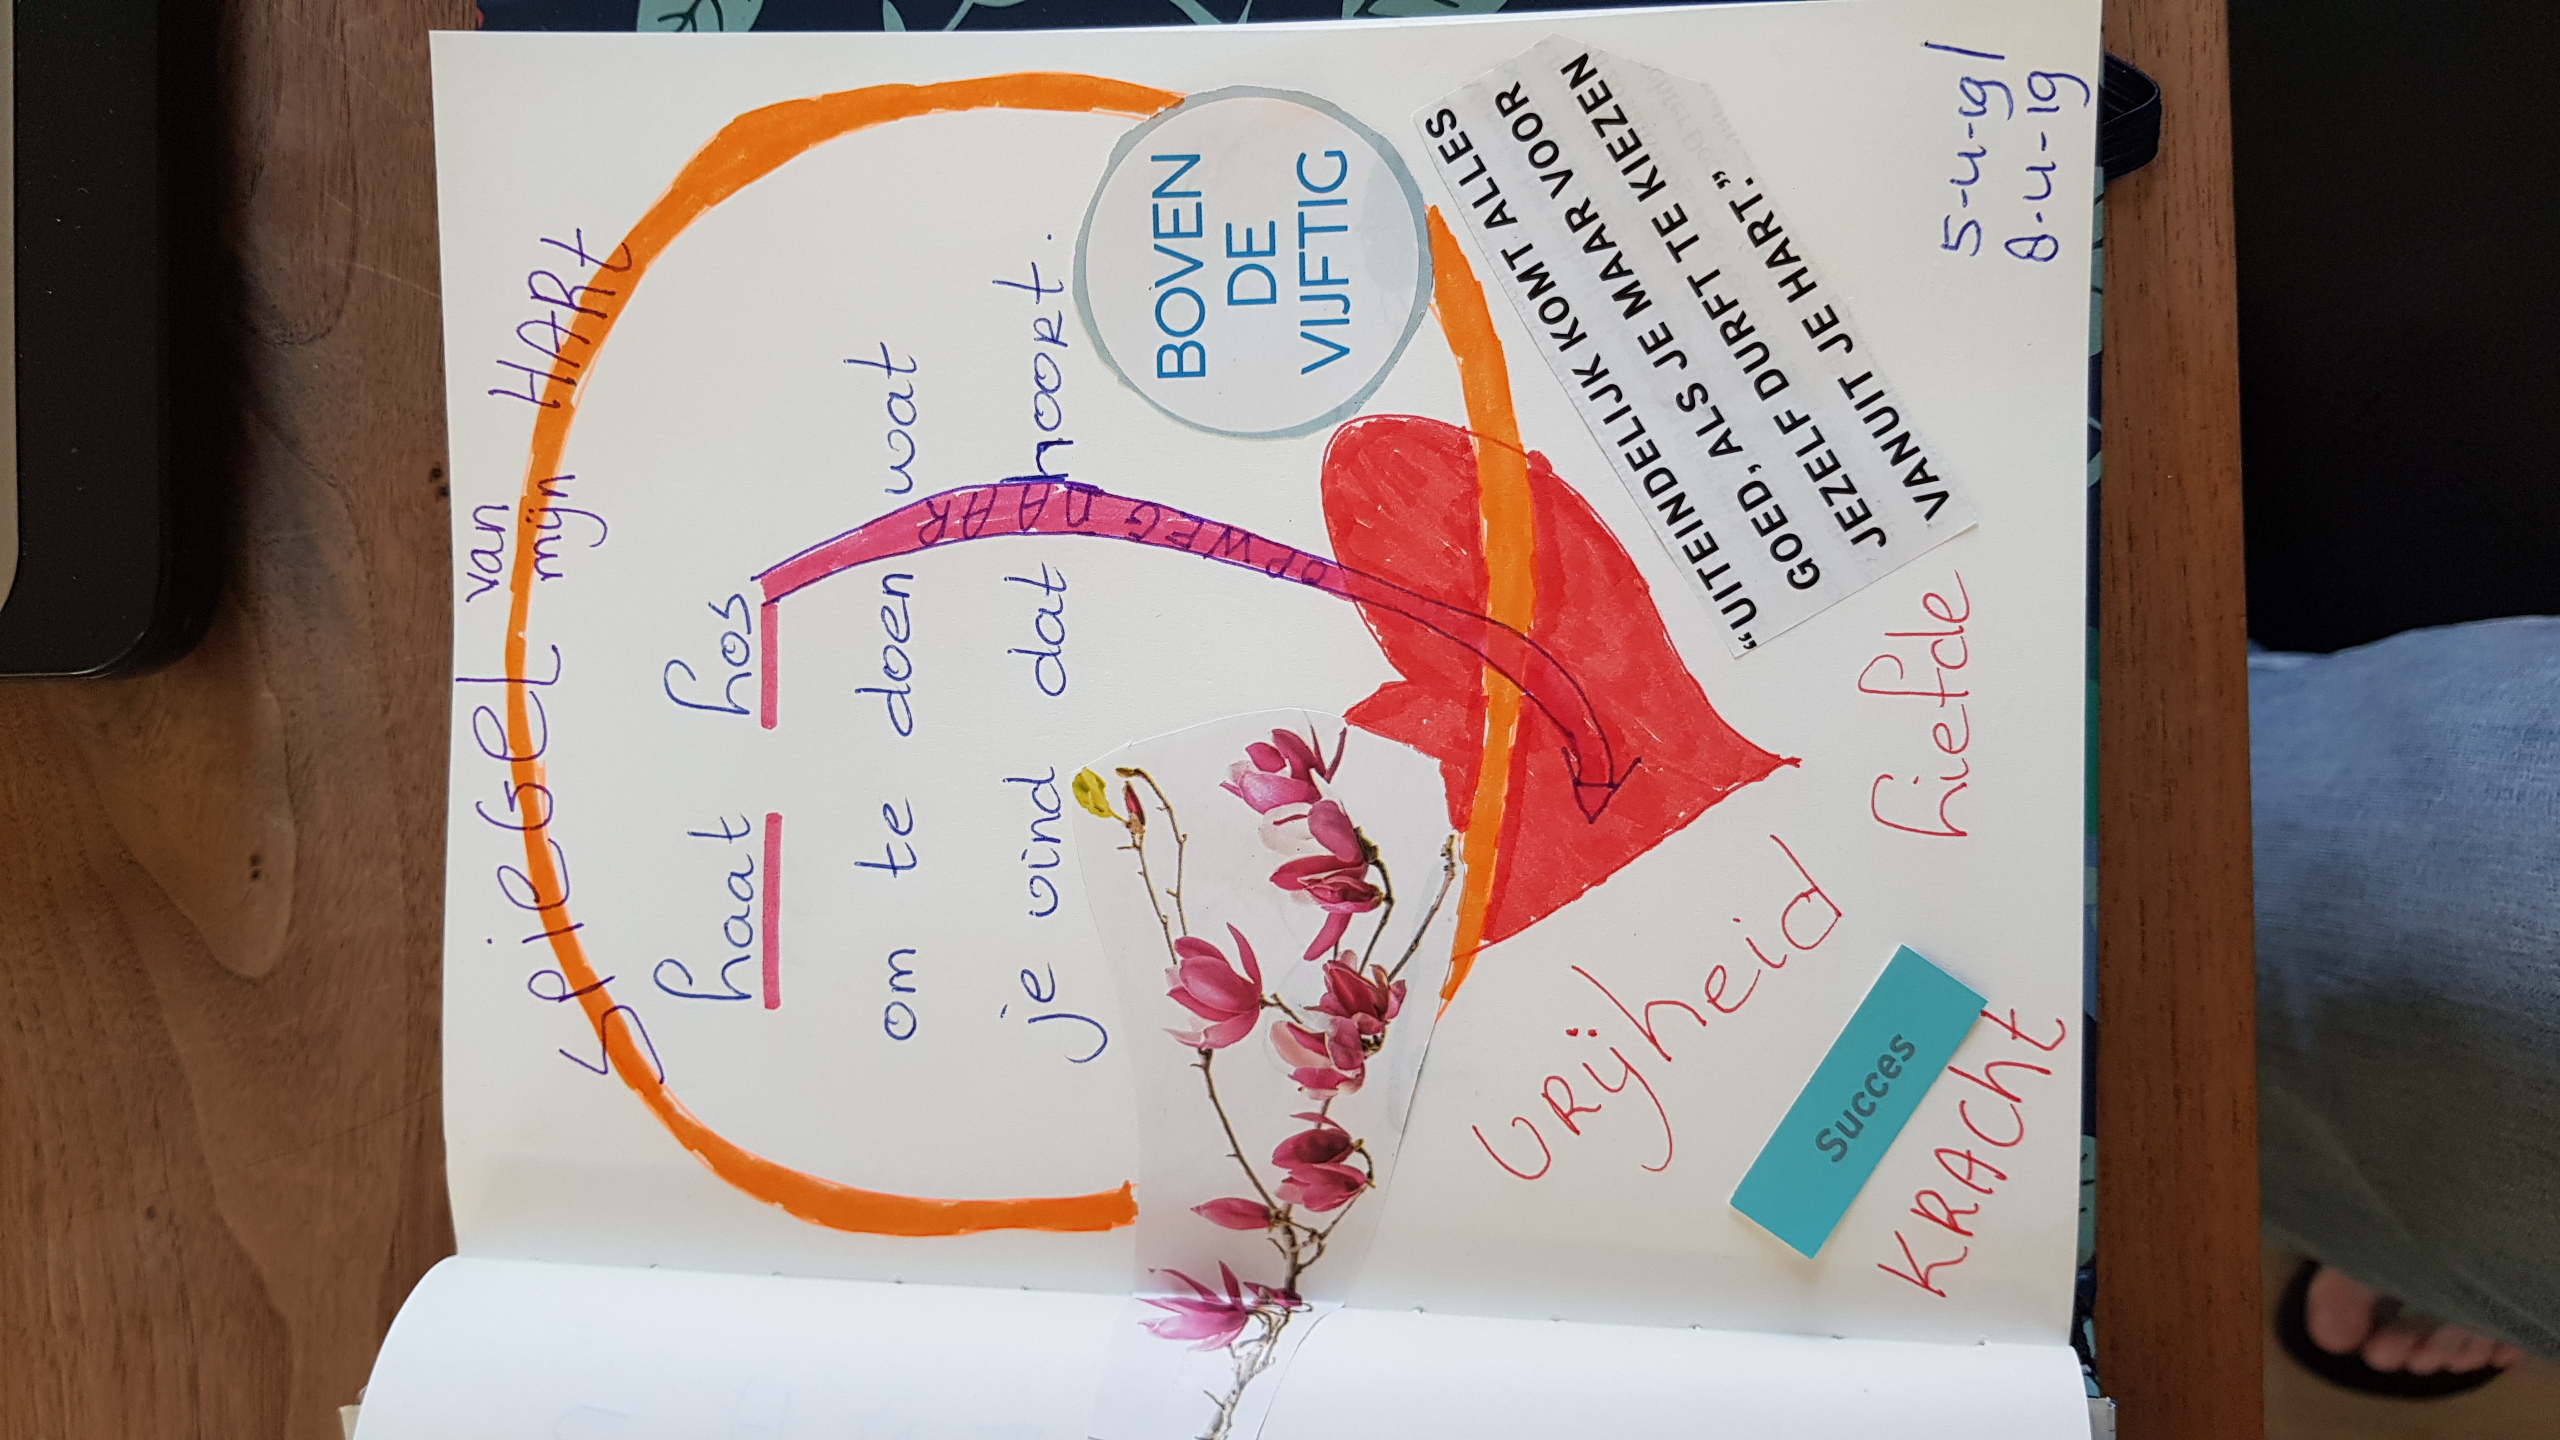 SPIEGEL van mijn HART
Laat los
om te doen wat
je vind dat hoort.
OPWEG NAAR
BOVEN
DE
VIJFTIG
“UITEINDELIJK KOMT ALLES
GOED, ALS JE MAAR VOOR
JEZELF DURFT TE KIEZEN
VANUIT JE HART.”
VRijheid
Liefde
Succes
KRACht
5-4-19/
8-4-19